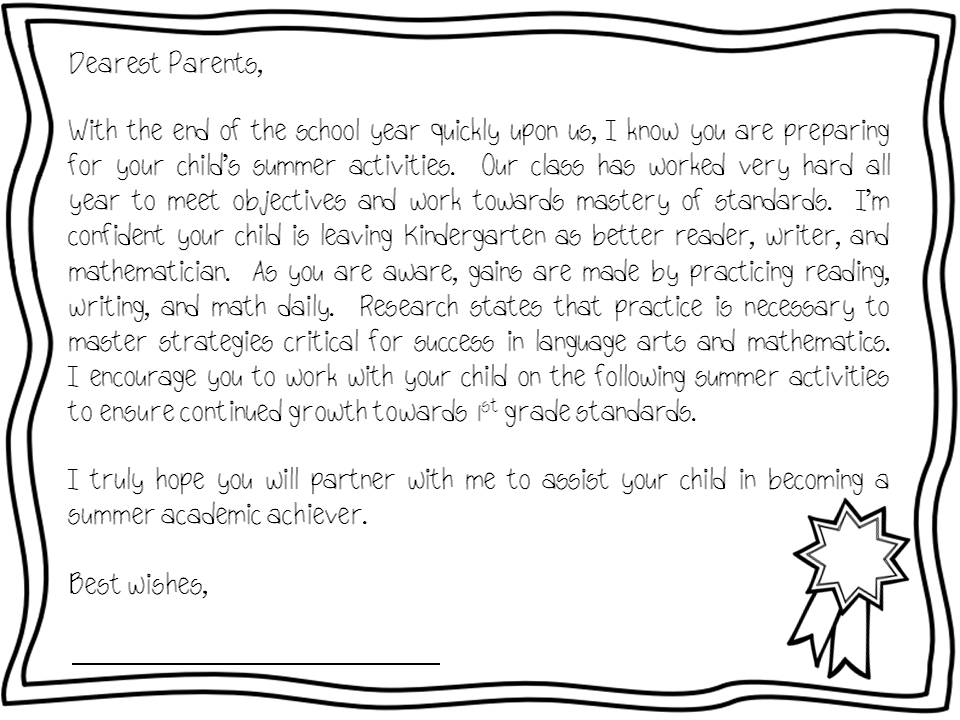 Dearest Parents,
With the end of the school year quickly upon us, I know you are preparing
for your child's summer activities. Our class has worked very hard all
year to meet objectives and work towards mastery of standards. I'm
confident your child is leaving Kindergarten as better reader, writer, and
mathematician. As you are aware, gains are made by practicing reading,
writing, and math daily. Research states that practice is necessary to
master strategies critical for success in language arts and mathematics.
I encourage you to work with your child on the following summer activities
to ensure continued growth towards 1st grade standards.
I truly hope you will partner with me to assist your child in becoming a
summer academic achiever.
Best wishes,